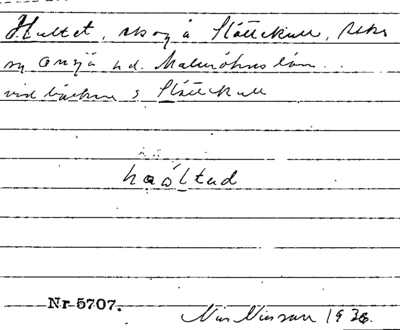 Hultet, skog å Slättekull, Seks
sn Onsjö hd. Malmöhus län.
vid bäcken s Slättekull
Nr 5707.
Nils Nilsson 1936.